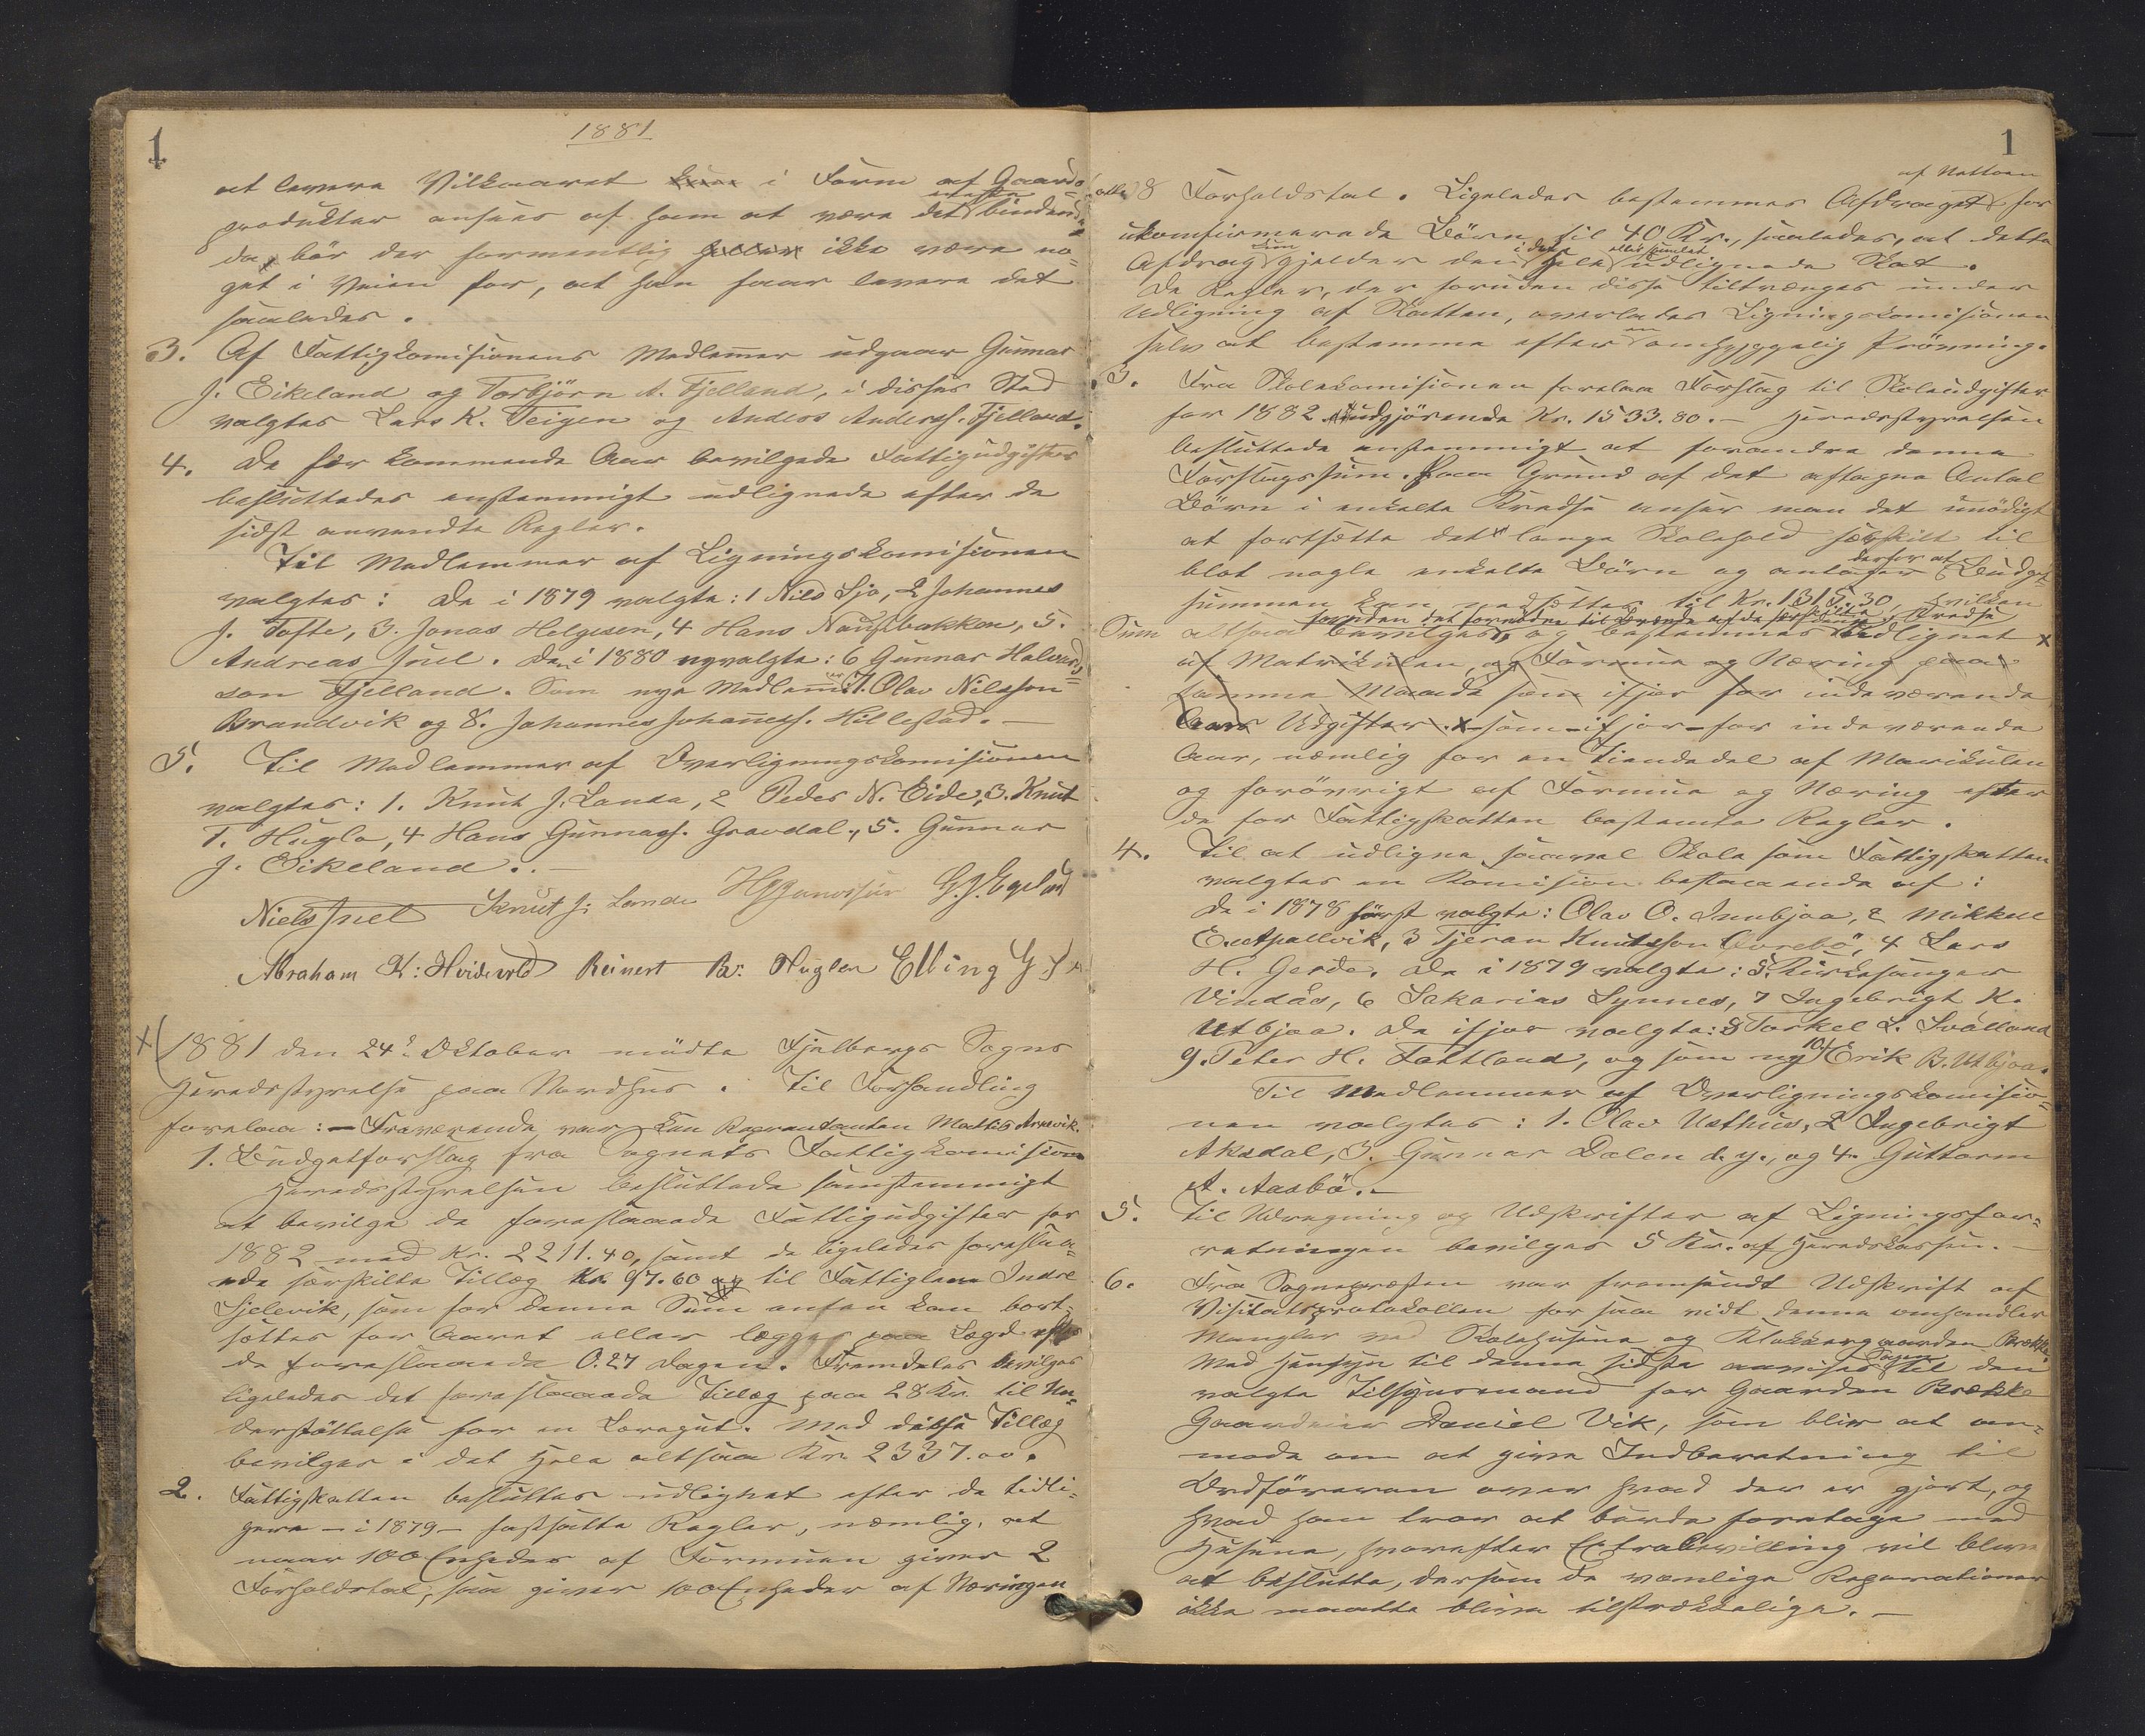 1
1881
at levere Vilkaaret i Form af Gaards=
produkter ansees af ham at være det bindende
da bör der formentlig ikke være no=
get i Veien for, at han faar levere det
saaledes.
3. Af Fattigkomisionens Medlemer udgaar Gunnar
J. Eikeland og Torbjörn A. Fjelland, i disses Sted
valgtes Lars K. Teigen og Anders Anderss. Fjelland.
4. De for kommende Aar bevilgede Fattigudgifter
besluttedes enstemmigt udlignede efter de
sidst anvendte Regler.
Til Medlemmer af Ligningskomisionen
valgtes: De i 1879 valgte: 1 Nils Sjo, 2 Johannes
J. Tofte, 3. Jonas Helgesen, 4 Hans Naustbakken, 5.
Andreas Juel. De i 1880 nyvalgte: 6 Gunnar Halvards=
son Fjelland. Som nye Medlemer: 7. Olav Nilsson
Brandvik og 8. Johannes Johaness. Hillestad. —
5. Til Medlemmer af Overligningskomisionen
valgtes: 1. Knut J. Landa, 2 Peder N. Eide, 3. Knut
T. Hugla, 4 Hans Gunnars. Gravdal., 5. Gunnar
J. Eikeland. —
Niels Juel Knut J. Lande G. J. Egeland
Abraham K: Hvidevold Reinert Huglen Elling G.
1881 den 24de Oktober mödte Fjelbergs Sogns
Heredsstyrelse paa Nordhus. Til Forhandling
forelaa: — Fraværende var kun Repræsentanten Mattis Arnevik.
1. Budgetforslag fra Sognets Fattigkomision
Heredsstyrelsen besluttede samstemmigt
at bevilge de foreslaaede Fattigudgifter for
1882 med Kr. 2211.40, samt de ligeledes foreslaa=
ede særskilte Tillæg Kr. 97.60 til Fattiglem Indre
Sjelevik, som for denne Sum enten kan bort=
sættes for Aaret eller lægges paa Lægd efter
de foreslaaede 0.27 Dagen. Fremdeles bevilges
ligeledes det foreslaaede Tillæg paa 28 Kr. til Un=
derstöttelse for en Læregut. Med disse Tillæg
bevilges i det Hele altsaa Kr. 2337.00.
2. Fattigskatten besluttes udlignet efter de tidli=
gere — i 1879 — fastsatte Regler, nemlig, at
naar 100 Enheder af Formuen giver 2
Forholdstal, saa giver 100 Enheder af Næringen
1
8 Forholdstal. Ligeledes bestemmes Afdraget af Nettoen for
ukonfirmerede Börn til 40 Kr., saaledes, at dette
Afdrag kun gjelder den i det Hele udlignede Skat.
De Regler, der foruden disse tiltrænges under
Udligning af Skatten, overlades Ligningskomisionen
selv at bestemme efter en omhyggelig Prövning.
3. Fra Skolekomisionen forelaa Forslag til Skoleudgifter
for 1882 udgjörende Kr. 1533.80. — Heredsstyrelsen
besluttede enstemmigt at forandre denne
Forslagssum. Paa Grund af det aftagne Antal
Börn i enkelte Kredse anser man det unödigt
at fortsætte det lange Skolehold særskilt til
blot nogle enkelte Börn og antager derfor at Budget=
summen kan nedsættes til Kr. 1315.30, hvilken
Sum altsaa bevilges, og bestemmes udlignet x
af Matrikulen og Formue og Næring paa
samme Maade som ifjor for indeværende
Aars Udgifter. x som ifjor for indeværende
Aar, nemlig for en Tiendedel af Matrikulen
og forövrigt af Formue og Næring efter
de for Fattigskatten bestemte Regler.
4. Til at udligne saavel Skole som Fattigskatten
valgtes en Komision bestaaende af:
De i 1878 först valgte: Olav O. Innbjoa, 2 Mikkel
E. Apallvik, 3 Tjeran Knutsson Övrebö, 4 Lars
H. Gerde. De i 1879 valgte: 5. Kirkesanger
Vindås, 6 Sakarias Synnes, 7 Ingebrigt K.
Utbjoa. De ifjor valgte: 8 Torkel L. Svålland
9. Peter H. Fattland, og som ny 10. Erik B. Utbjoa.
Til Medlemmer af Overligningskomisio=
nen valgtes: 1. Olav Usthus, 2 Ingebrigt
Aksdal, 3. Gunnar Dalen d. y., og 4. Guttorm
A. Aasbö. —
5. Til Udregning og Udskrifter af Ligningsfor=
retningen bevilges 5 Kr. af Heredskassen. —
6. Fra Sognepræsten var fremsendt Udskrift af
Visitatsprotokollen for saa vidt denne omhandler
Mangler ved Skolehusene og Klokkergaarden Brække.
Med Hensyn til denne sidste anvises Sagen til den
valgte Tilsynsmand for Gaarden Brække
Gaardeier Daniel Vik, som blir at an=
mode om at give Indberetning til
Ordföreren over hvad der er gjort, og
hvad han tror at burde foretage med
Husene, hvorefter Extrabevilling vil blive
at beslutte, dersom de vanlige Reparationer
ikke maatte blive tilstrækkelige. —